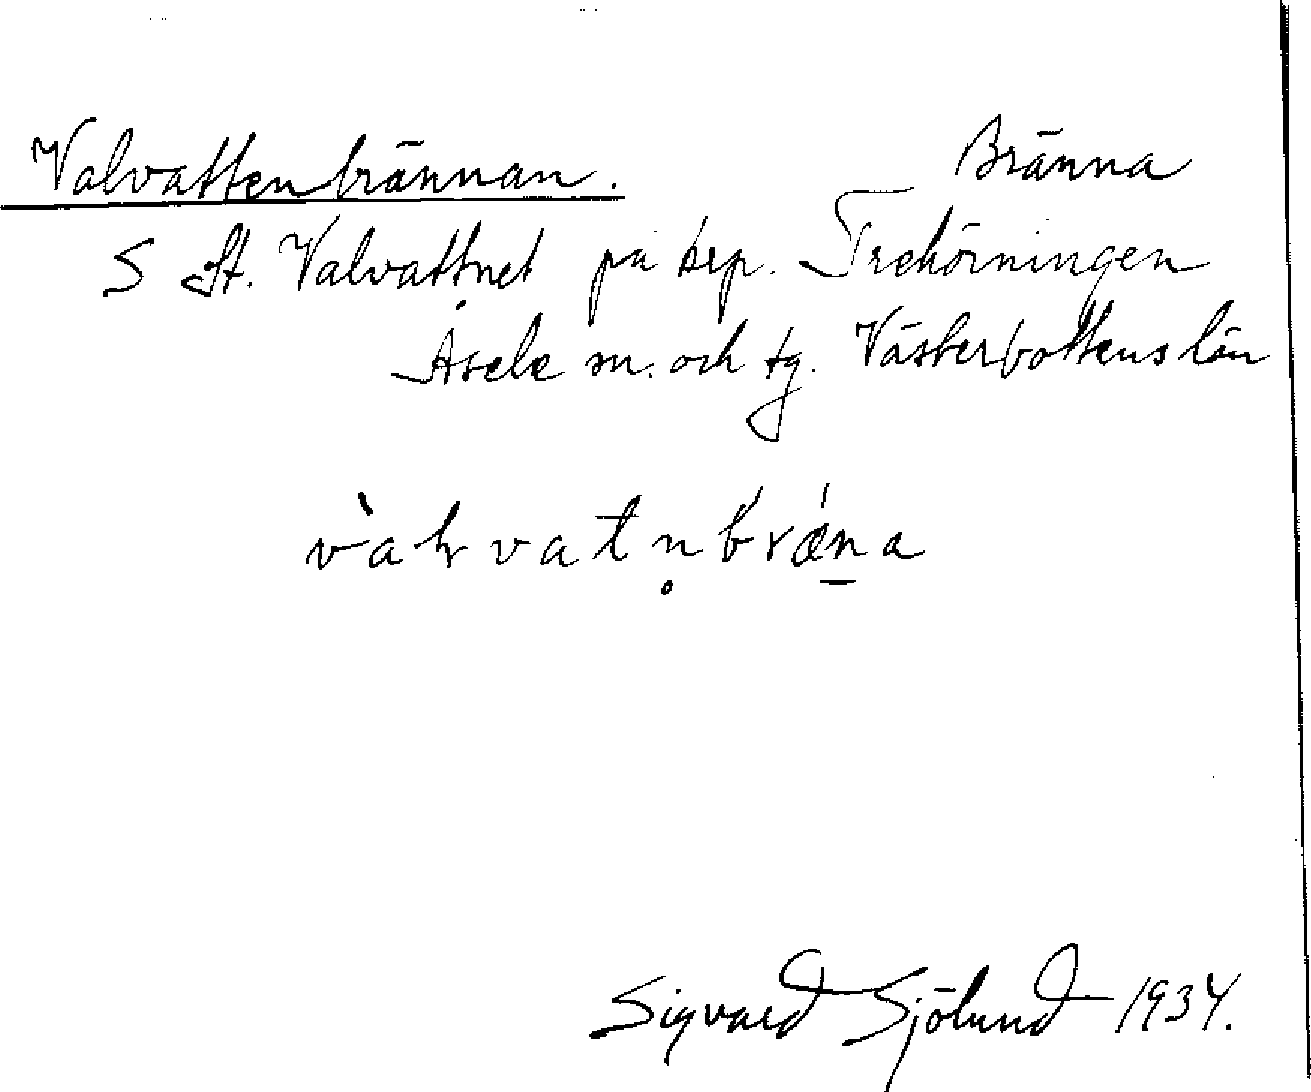 Valvattenbrännan. Bränna
S St. Valvattnet på krp. Trehörningen
Åsele sn. och tg. Västerbottens län
vàlvatn̥brǽn̠a
Sigvard Sjölund 1934.